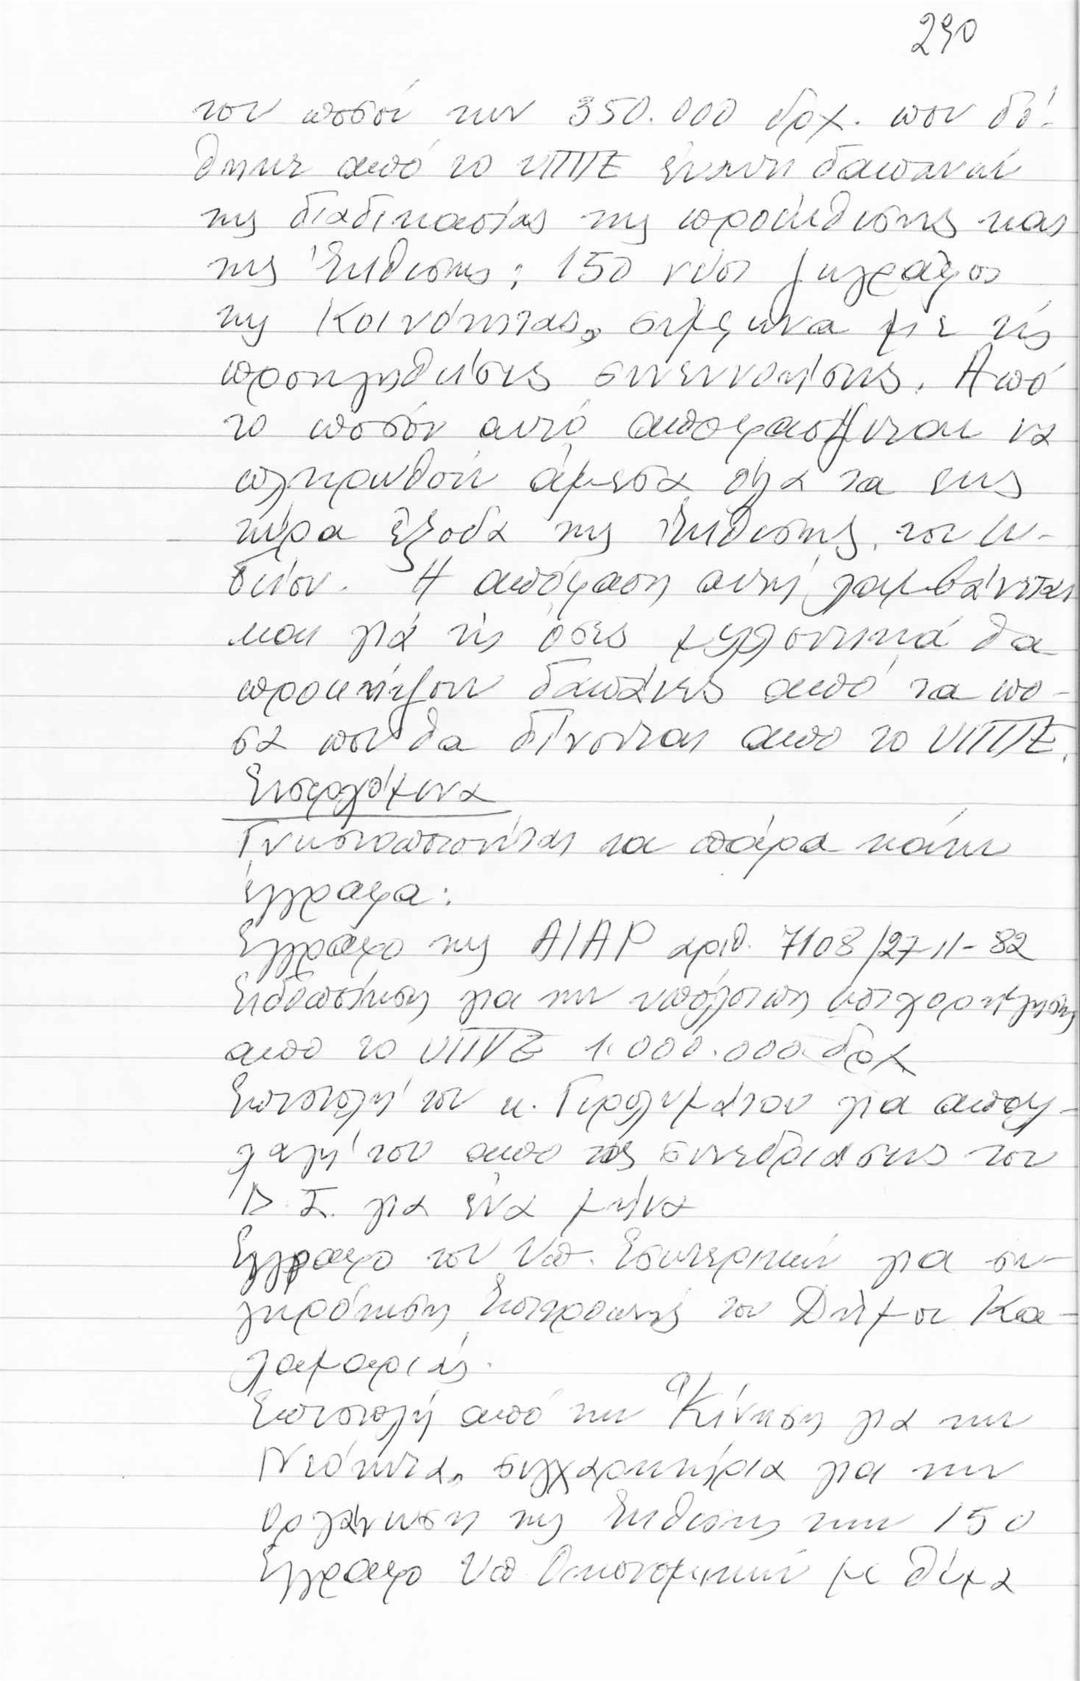 290
του ποσού των 350.000 δρχ. που δό-
θηκε από το ΥΠΠΕ έναντι δαπανών
της διαδικασίας της προέκθεσης και
της Έκθεσης "150 νέοι ζωγράφοι
της Κοινότητας", σύμφωνα με τις
προηγηθείσες συνεννοήσεις. Από
το ποσόν αυτό αποφασίζεται να
πληρωθούν άμεσα όλα τα έως
τώρα έξοδα της Έκθεσης του
Η απόφαση αυτή λαμβάνεται
και γιά τις όσες μελλοντικά θα
προκύψουν δαπάνες από τα πο-
σα που θα δίνονται απο το ΥΠΠΕ.
Εισερχόμενα
Γνωστοποιούνται τα πάρα κάτω
έγγραφα:
Έγγραφο της AIAP αριθ. 7108/27-11-82
Ειδοποίηση για την υπόλοιπη επιχορήγηση
απο το ΥΠΠΕ 1.000.000 δρχ
Επιστολή του κ. Γερολυμάτου για απαλ-
λαγή του απο τις συνεδριάσεις του
Δ.Σ. για ένα μήνα
Έγγραφο του Υπ. Εσωτερικών για συ-
γκρότηση Επιτροπής του Δήμου Κα-
λαμαριάς.
Επιστολή από την "Κίνηση για την
Νεότητα" συγχαρητήρια για την
οργάνωση της Έκθεσης των 150
Έγγραφο Υπ Οικονομικών με θέμα